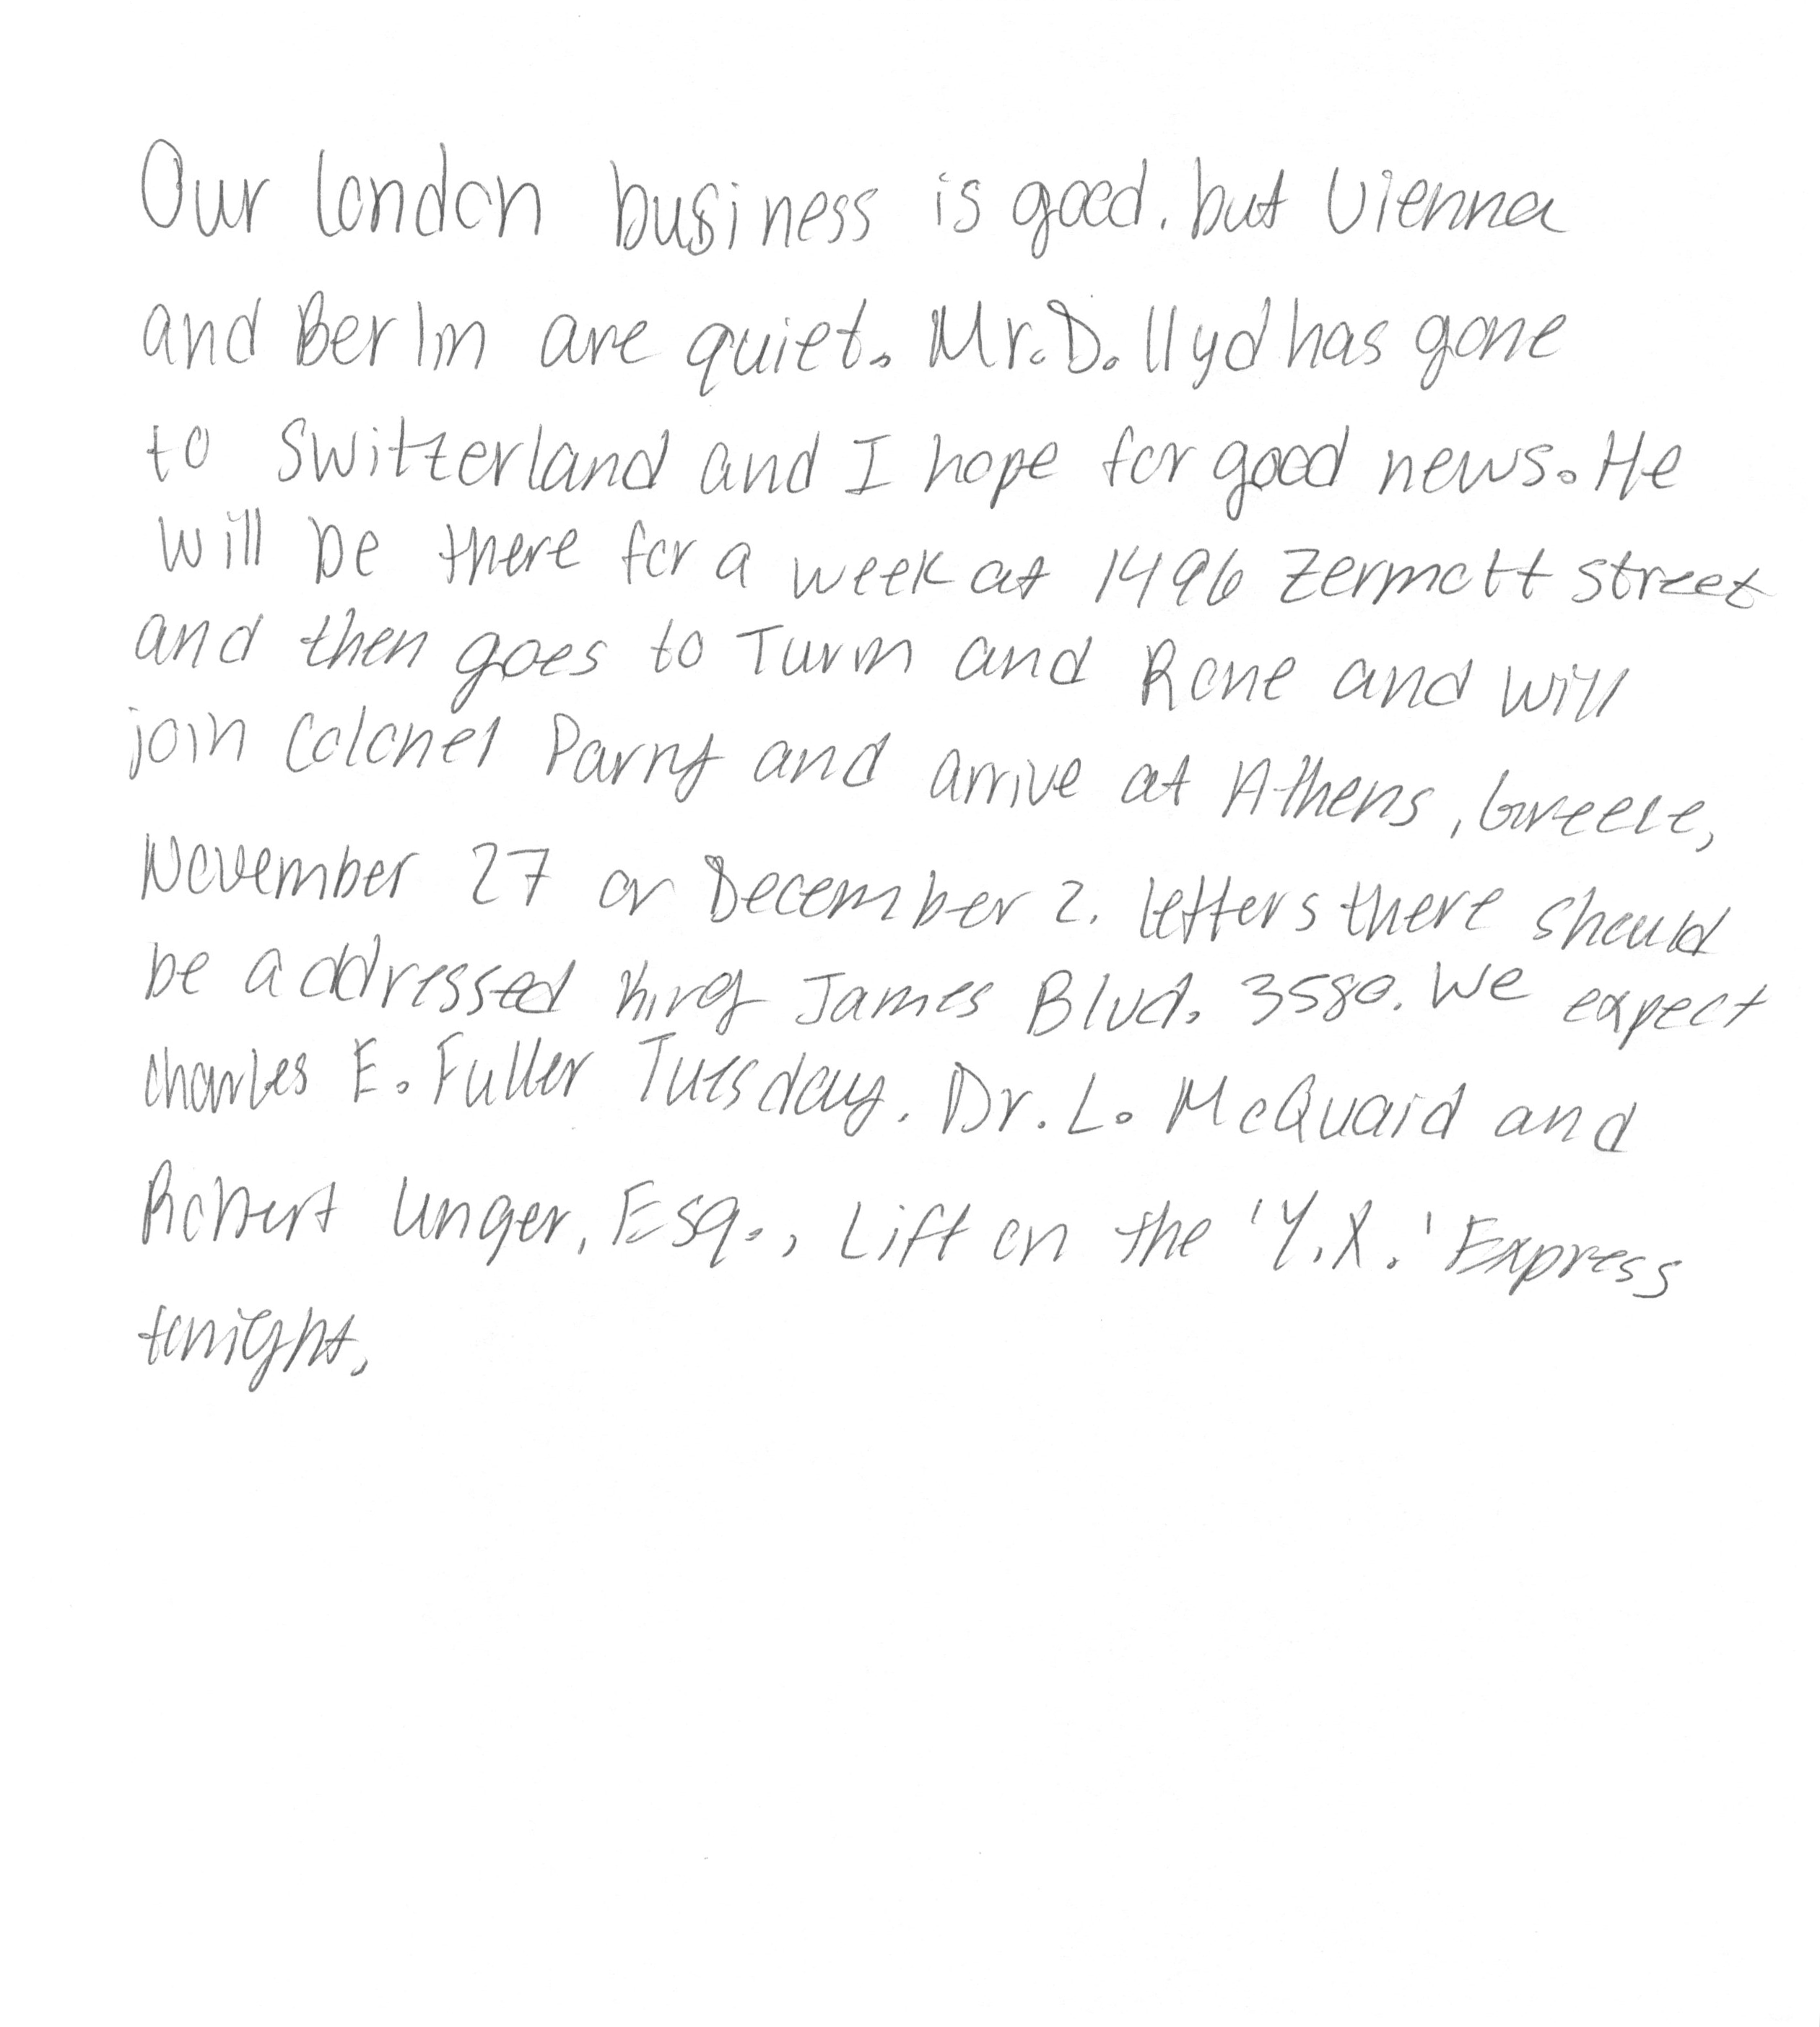 Our london business is good, but Vienna
and Berlin are quiet. Mr. D. llyd has gone
to Switzerland and I hope for good news. He
will be there for a week at 1496 Zermott street
and then goes to Turin and Rone and will
join Colonel Parry and arrive at Athens, Greece,
November 27 or December 2. letters there should
be addressed King James Blvd. 3580. We expect
Charles E. Fuller Tuesday. Dr. L. McQuaid and
Robert Unger, Esq., Lift on the 'Y.X.' Express
tonight.